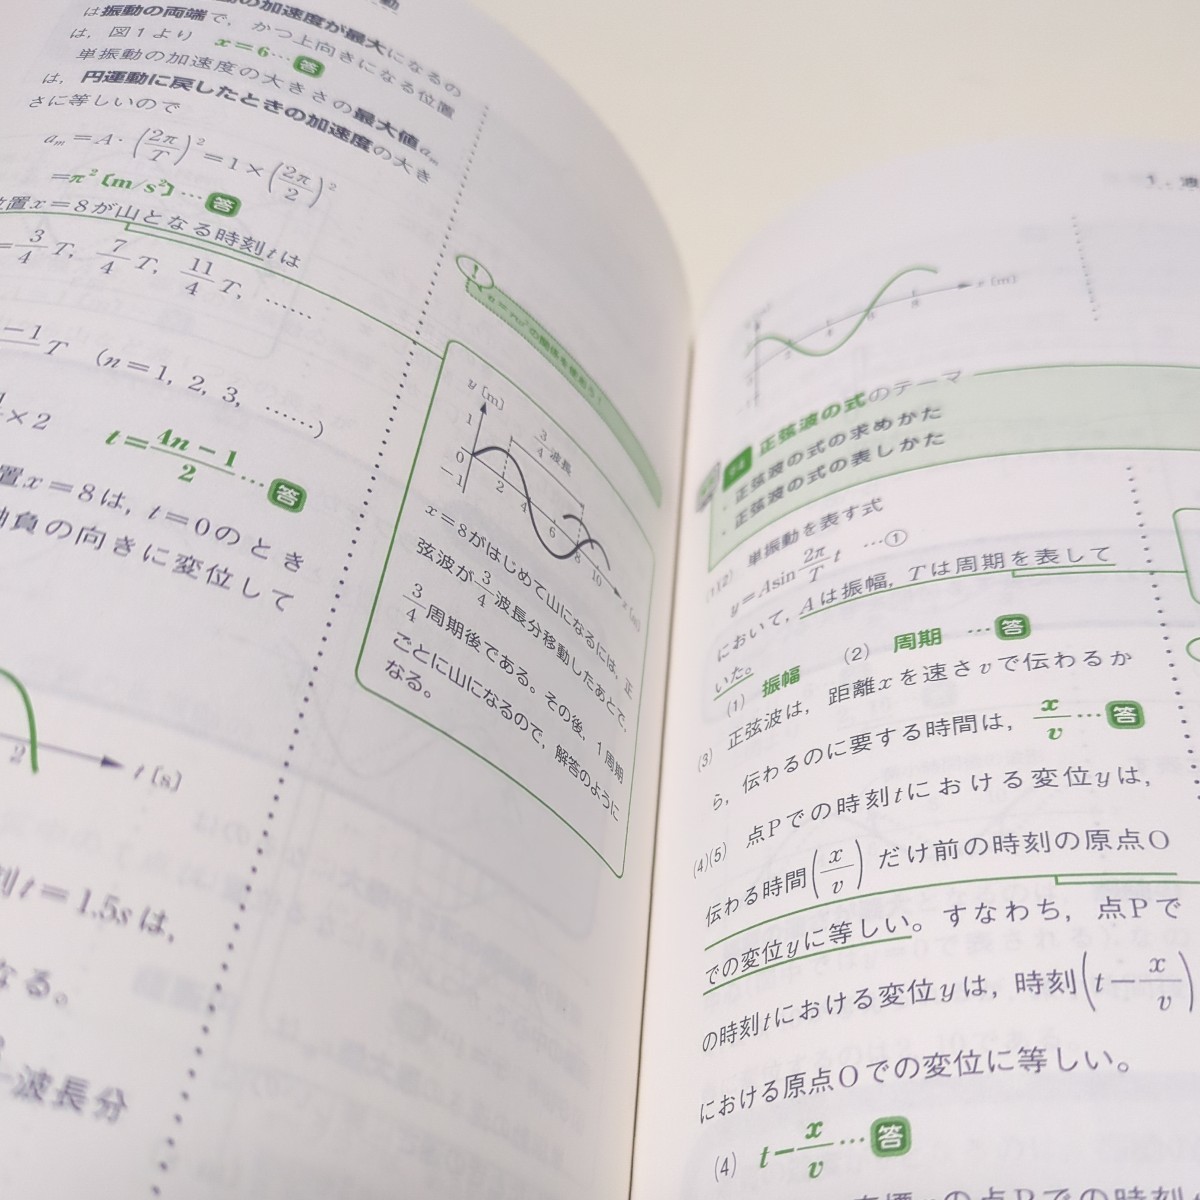 の加速度が最大になるの
は振動の両端で，かつ上向きになる位置
は，図1より x＝6…答
単振動の加速度の大きさの最大値aₘ
は，円運動に戻したときの加速度の大き
さに等しいので
aₘ＝A・(2π/T)²＝1×(2π/2)²
＝π²〔m/s²〕…答
置x＝8が山となる時刻tは
＝3/4 T, 7/4 T, 11/4 T, ……
－1 T (n＝1, 2, 3, ……)
×2 t＝4n－1/2 …答
置x＝8は，t＝0のとき
負の向きに変位して
2 t〔s〕
刻t＝1.5sは，
なる。
波長分
!
y〔m〕
1
0
－1
3/4 波長
2 4 6 8 10
x＝8がはじめて山になるには，正
弦波が3/4波長分移動したあとで，
3/4周期後である。その後，1周期
ごとに山になるので，解答のように
なる。
1．波
x〔m〕
正弦波の式のテーマ
・正弦波の式の求めかた
・正弦波の式の表しかた
(1)(2) 単振動を表す式
y＝Asin 2π/T t …①
において，Aは振幅，Tは周期を表して
いた。
(1) 振幅 (2) 周期 …答
(3) 正弦波は，距離xを速さvで伝わるか
ら，伝わるのに要する時間は，x/v…答
(4)(5) 点Pでの時刻tにおける変位yは，
伝わる時間(x/v)だけ前の時刻の原点O
での変位yに等しい。すなわち，点Pで
の時刻tにおける変位yは，時刻(t－x/v)
における原点Oでの変位に等しい。
(4) t－x/v…答
の点Pでの時刻